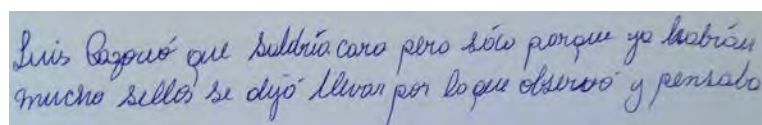 Luis Razonó que saldría caro pero sólo porque ya habrán
mucho sellos se dejó llevar por lo que observó y pensaba